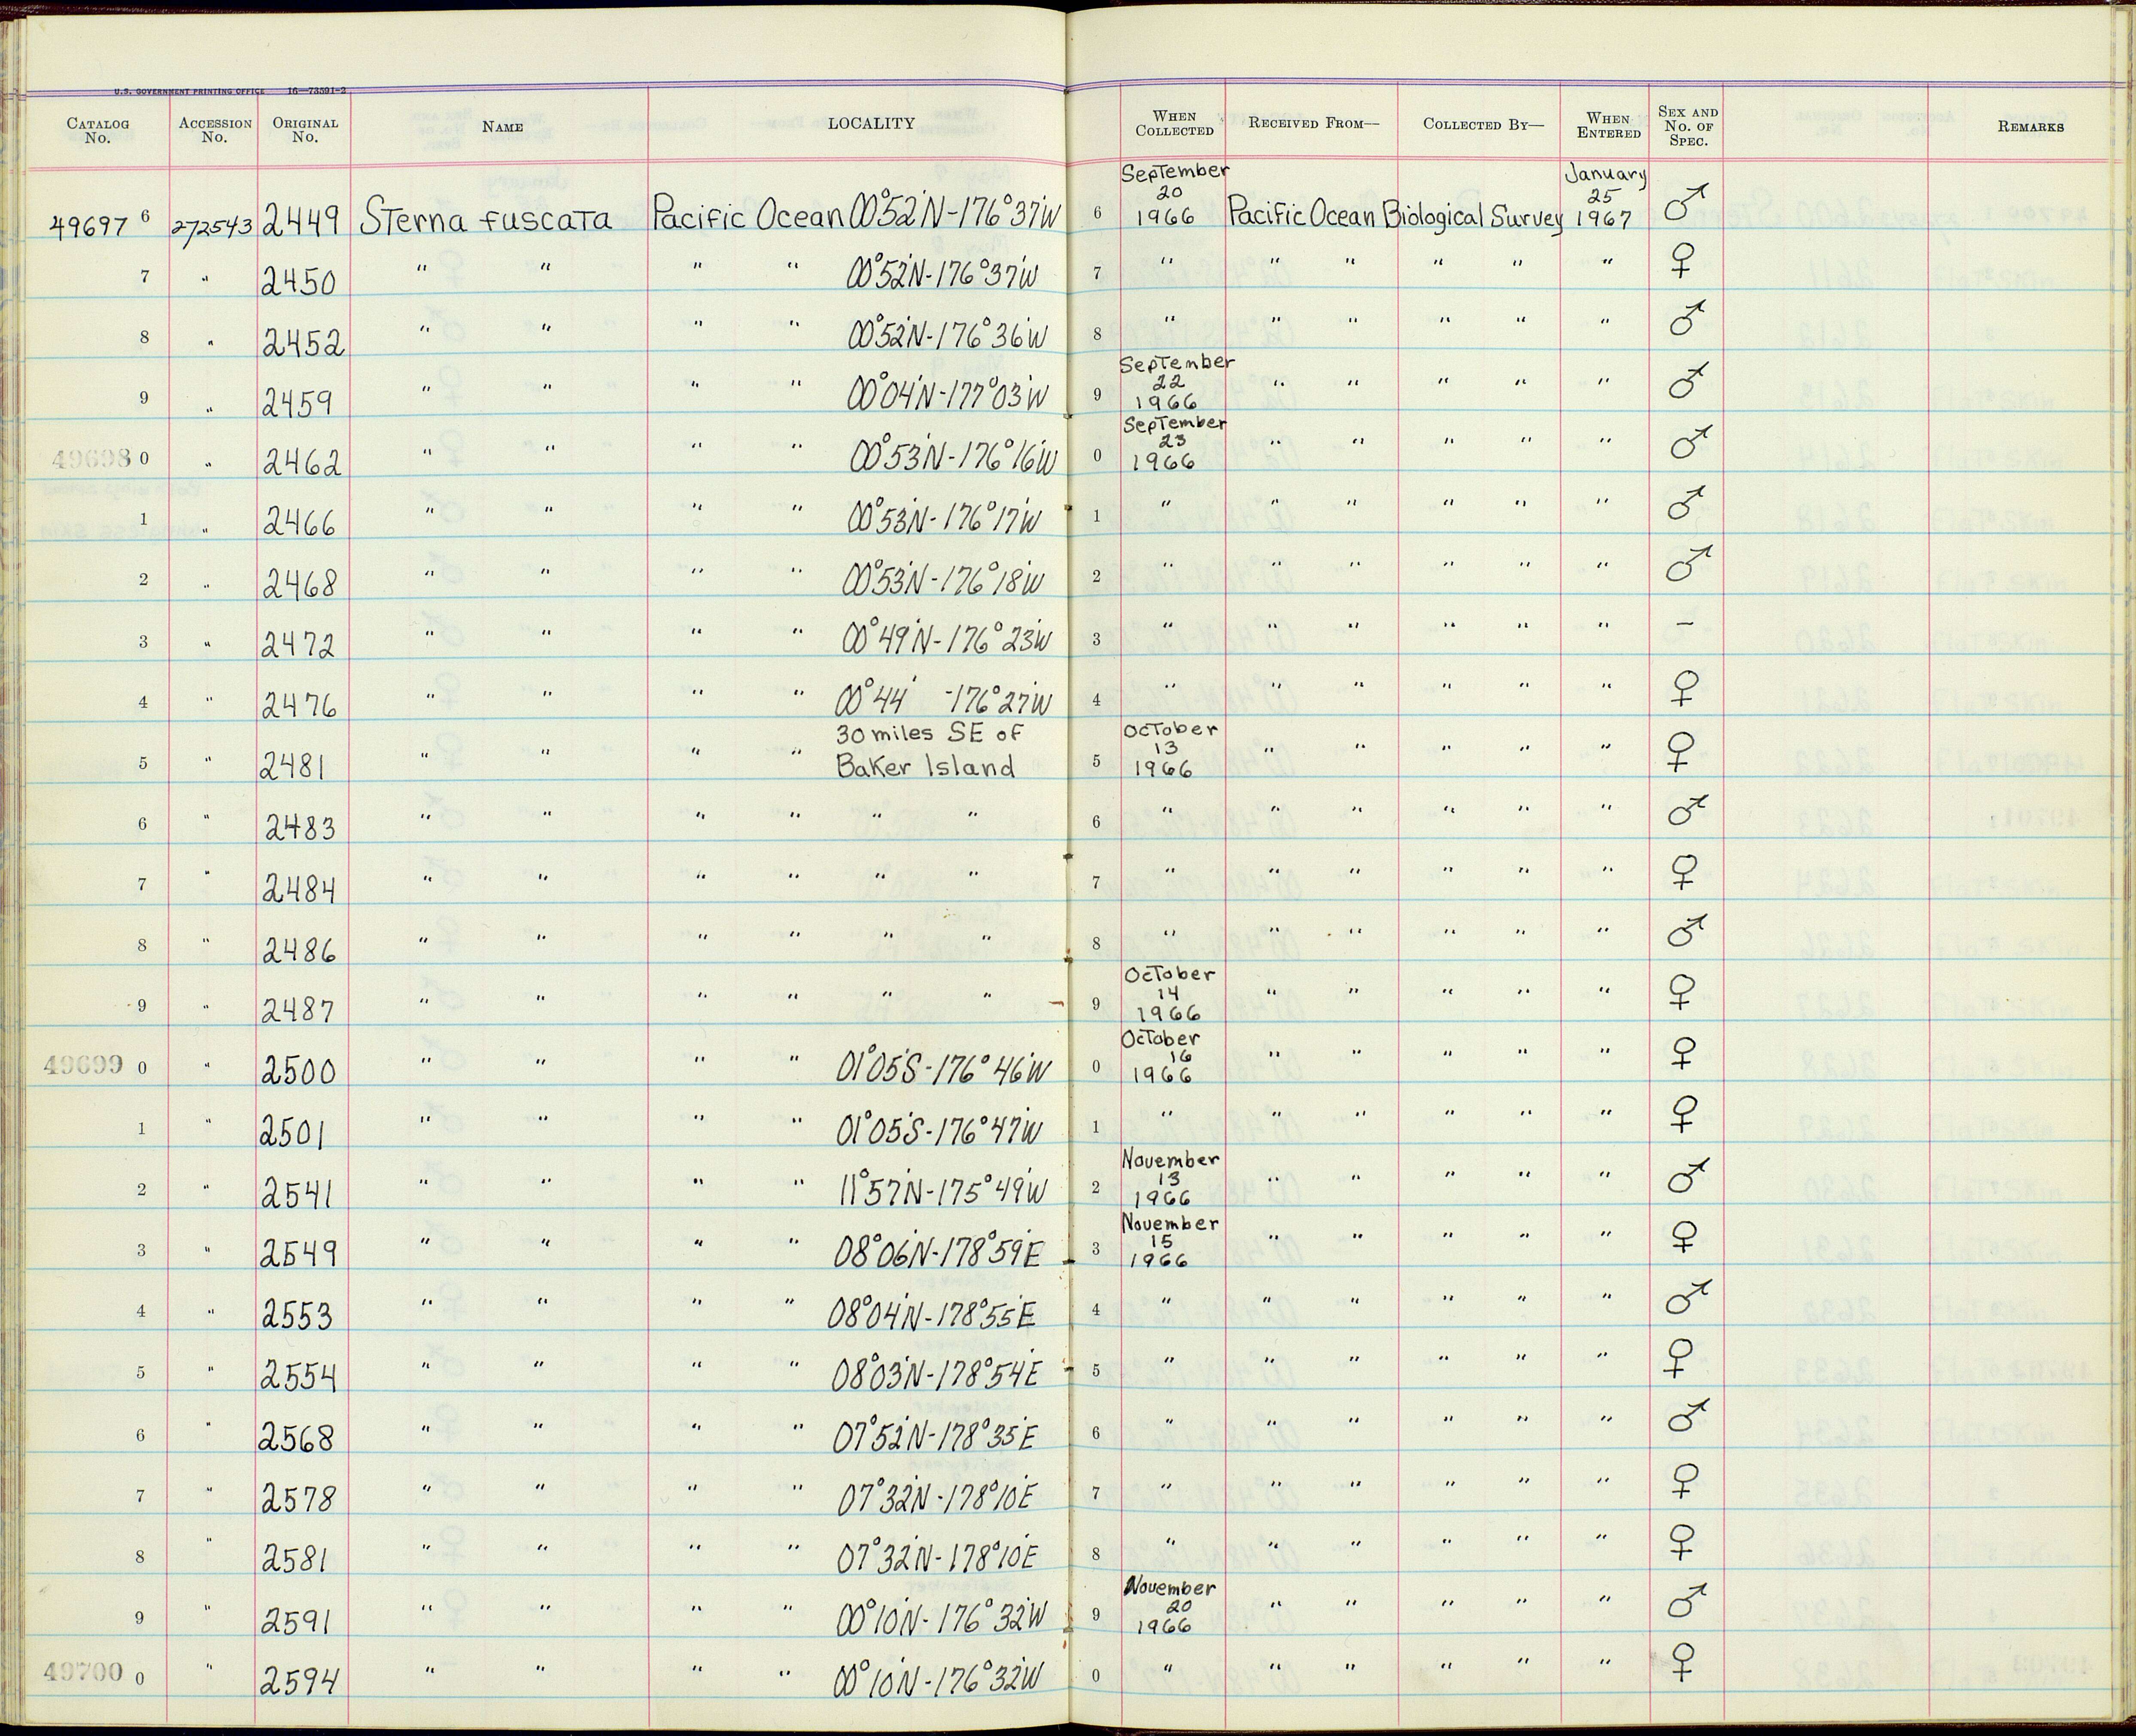 U.S. GOVERNMENT PRINTING OFFICE 16—73591-2
CATALOG No. ACCESSION No. ORIGINAL No. NAME LOCALITY WHEN COLLECTED RECEIVED FROM— COLLECTED BY— WHEN ENTERED SEX AND No. OF SPEC. REMARKS
49697 6 272543 2449 Sterna fuscata Pacific Ocean 00°52'N-176°37'W 6 September 20 1966 Pacific Ocean Biological Survey January 25 1967 ♂
7 " 2450 " " " " 00°52'N-176°37'W 7 " " " " " " ♀
8 " 2452 " " " " 00°52'N-176°36'W 8 " " " " " " ♂
9 " 2459 " " " " 00°04'N-177°03'W 9 September 22 1966 " " " " " ♂
49698 0 " 2462 " " " " 00°53'N-176°16'W 0 September 23 1966 " " " " " ♂
1 " 2466 " " " " 00°53'N-176°17'W 1 " " " " " " ♂
2 " 2468 " " " " 00°53'N-176°18'W 2 " " " " " " ♂
3 " 2472 " " " " 00°49'N-176°23'W 3 " " " " " " –
4 " 2476 " " " " 00°44' -176°27'W 4 " " " " " " ♀
5 " 2481 " " " " 30 miles SE of Baker Island 5 October 13 1966 " " " " " ♀
6 " 2483 " " " " " " 6 " " " " " " ♂
7 " 2484 " " " " " " 7 " " " " " " ♀
8 " 2486 " " " " " " 8 " " " " " " ♂
9 " 2487 " " " " " " 9 October 14 1966 " " " " " ♀
49699 0 " 2500 " " " " 01°05'S-176°46'W 0 October 16 1966 " " " " " ♀
1 " 2501 " " " " 01°05'S-176°47'W 1 " " " " " " ♀
2 " 2541 " " " " 11°57'N-175°49'W 2 November 13 1966 " " " " " ♂
3 " 2549 " " " " 08°06'N-178°59'E 3 November 15 1966 " " " " " ♀
4 " 2553 " " " " 08°04'N-178°55'E 4 " " " " " " ♂
5 " 2554 " " " " 08°03'N-178°54'E 5 " " " " " " ♀
6 " 2568 " " " " 07°52'N-178°35'E 6 " " " " " " ♂
7 " 2578 " " " " 07°32'N-178°10'E 7 " " " " " " ♀
8 " 2581 " " " " 07°32'N-178°10'E 8 " " " " " " ♀
9 " 2591 " " " " 00°10'N-176°32'W 9 November 20 1966 " " " " " ♂
49700 0 " 2594 " " " " 00°10'N-176°32'W 0 " " " " " " ♀